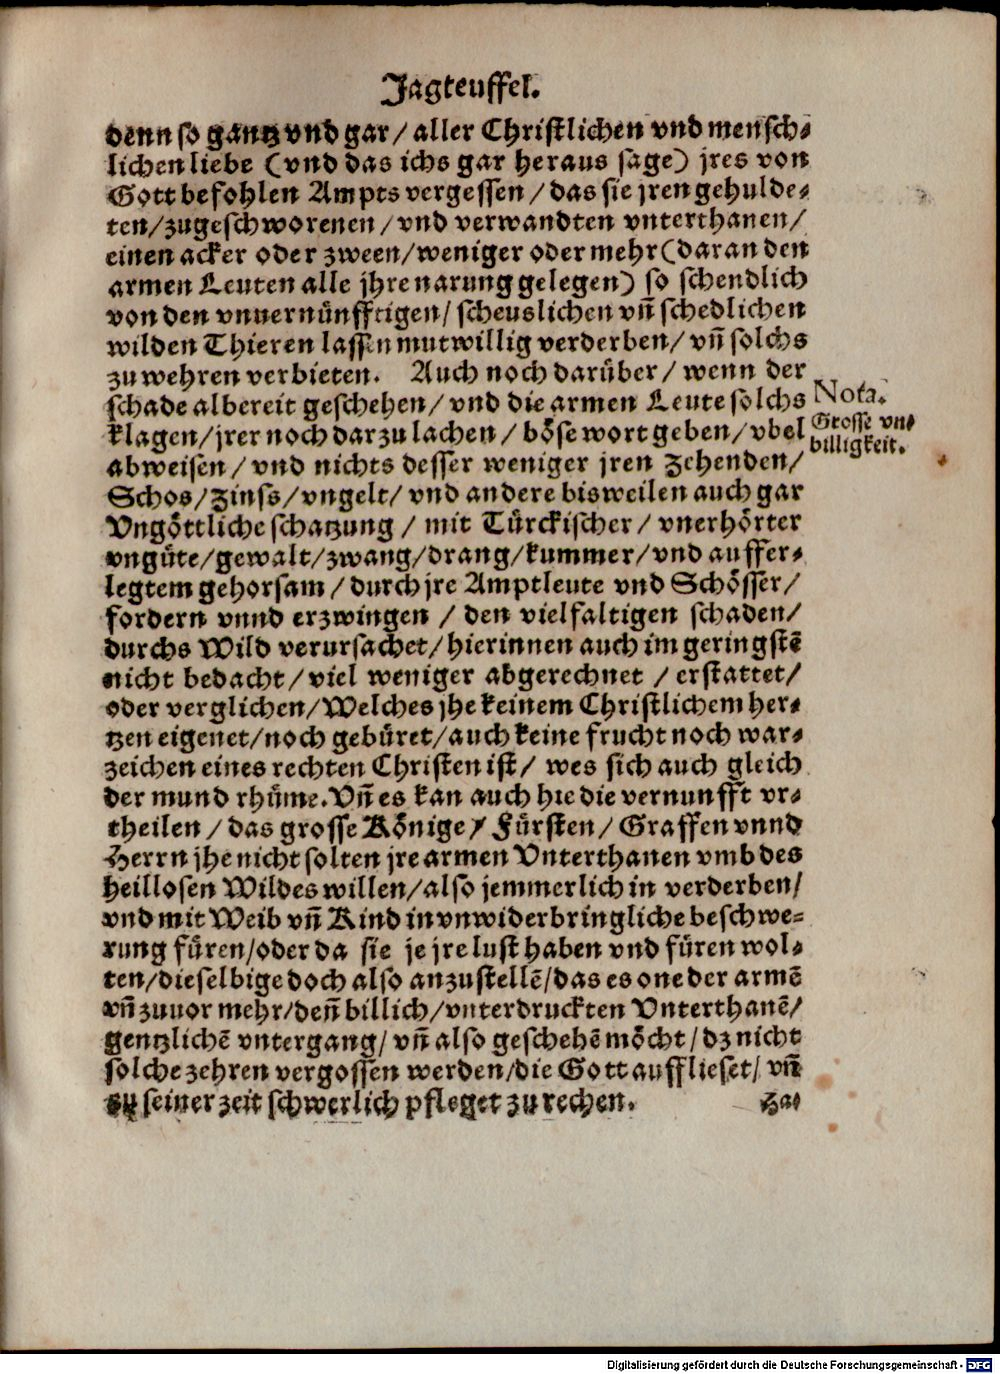 Jagteuffel.
denn so gantz vnd gar / aller Christlichen vnd mensch-
lichen liebe (vnd das ichs gar heraus sage) jres von
Gott befohlen Ampts vergessen / das sie jren gehulde-
ten / zugeschworenen / vnd verwandten vnterthanen /
einen acker oder zween / weniger oder mehr (daran den
armen Leuten alle jhre narung gelegen) so schendlich
von den vnuernünfftigen / scheuslichen vñ schedlichen
wilden Thieren lassen mutwillig verderben / vñ solchs
zu wehren verbieten. Auch noch darüber / wenn der
schade albereit geschehen / vnd die armen Leute solchs
Nota.
klagen / jrer noch darzu lachen / böse wort geben / vbel
Grosse vn-
billigkeit.
abweisen / vnd nichts desser weniger jren Zehenden /
Schos / Zinss / vngelt / vnd andere bisweilen auch gar
Vngöttliche schatzung / mit Türckischer / vnerhörter
vngüte / gewalt / zwang / drang / kummer / vnd auffer-
legtem gehorsam / durch jre Amptleute vnd Schösser /
fordern vnnd erzwingen / den vielfaltigen schaden /
durchs Wild verursachet / hierinnen auch im geringstē
nicht bedacht / viel weniger abgerechnet / erstattet /
oder verglichen / Welches jhe keinem Christlichem her-
tzen eigenet / noch gebüret / auch keine frucht noch war-
zeichen eines rechten Christen ist / wes sich auch gleich
der mund rhüme. Vñ es kan auch hie die vernunfft vr-
theilen / das grosse Könige / Fürsten / Graffen vnnd
Herrn jhe nicht solten jre armen Vnterthanen vmb des
heillosen Wildes willen / also jemmerlich in verderben /
vnd mit Weib vñ Kind in vnwiderbringliche beschwe-
rung füren / oder da sie je jre lust haben vnd füren wol-
ten / dieselbige doch also anzustellē / das es one der armē
vñ zuuor mehr / deñ billich / vnterdruckten Vnterthanē /
gentzlichē vntergang / vñ also geschehē möcht / dz nicht
solche zehren vergossen werden / die Gott aufflieset / vñ
zu seiner zeit schwerlich pfleget zu rechen.
Ha-
Digitalisierung gefördert durch die Deutsche Forschungsgemeinschaft - DFG